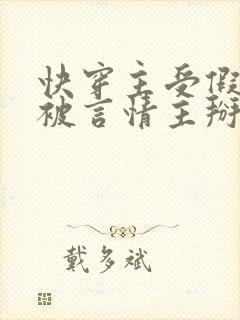 快穿主受假
被言情主掰
戴多斌